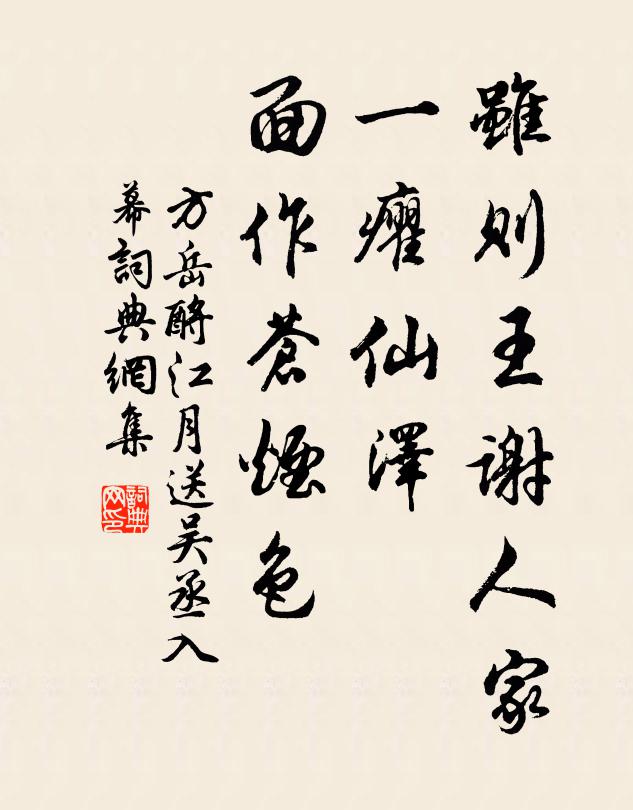 雖則王謝人家
一癯仙澤
面作蒼煙色
方岳酹江月送吴丞入
幕詞典網集
詞典网印